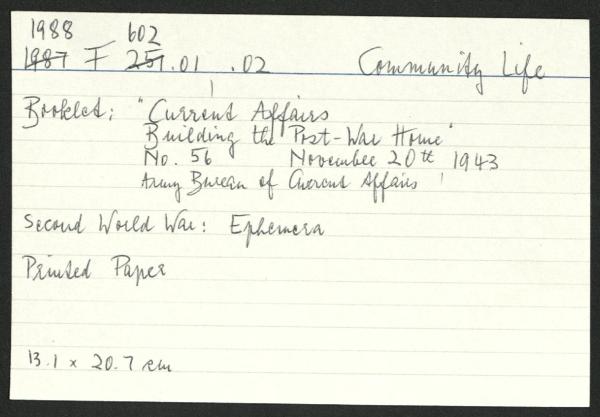 1988 602
1987 F 251.01 .02 Community Life
Booklet: "Current Affairs
Building the Post-War Home"
No. 56 November 20th 1943
Army Bureau of Current Affairs
Second World War: Ephemera
Printed Paper
13.1 x 20.7 cm